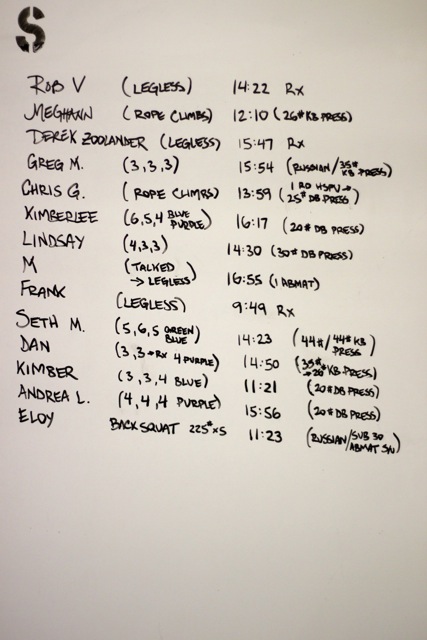 S
ROB V (LEGLESS) 14:22 RX
MEGHANN (ROPE CLIMBS) 12:10 (26# KB PRESS)
DEREK ZOOLANDER (LEGLESS) 15:47 RX
GREG M. (3,3,3) 15:54 (RUSSIAN/35# KB PRESS)
CHRIS G. (ROPE CLIMBS) 13:59 (1 RD HSPU → 25# DB PRESS)
KIMBERLEE (6,5,4 BLUE PURPLE) 16:17 (20# DB PRESS)
LINDSAY (4,3,3) 14:30 (30# DB PRESS)
M (TALKED → LEGLESS) 16:55 (1 ABMAT)
FRANK (LEGLESS) 9:49 RX
SETH M. (5,6,5 GREEN BLUE) 14:23 (44#/44# KB PRESS)
DAN (3,3→RX 4 PURPLE) 14:50 (35# → 26# KB PRESS)
KIMBER (3,3,4 BLUE) 11:21 (20# DB PRESS)
ANDREA L. (4,4,4 PURPLE) 15:56 (20# DB PRESS)
ELOY BACK SQUAT 225# x5 11:23 (RUSSIAN/SUB 30 ABMAT S/U)